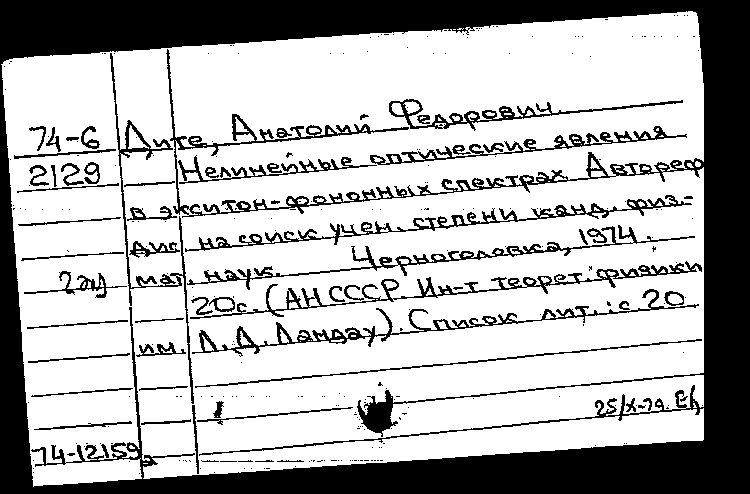 74-6 Дите, Анатолий Федорович.
2129 Нелинейные оптические явления
в экситон-фононных спектрах Автореф
дис. на соиск учен. степени канд. физ.-
мат. наук. Черноголовка, 1974.
20с. (АН СССР. Ин-т теорет. физики
им. Л. Д. Ландау). Список лит.: с 20
25/X-74.
74-12159